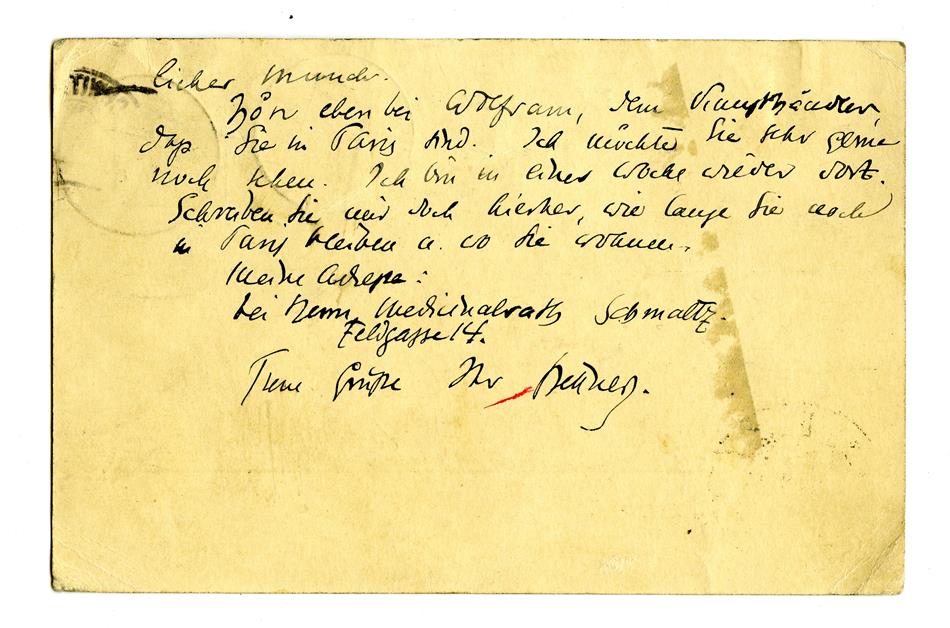 lieber Munch.
Höre eben bei Wolfram, dem Kunsthändler,
daß Sie in Paris sind. Ich möchte Sie sehr gerne
noch sehen. Ich bin in einer Woche wieder dort.
Schreiben Sie mir doch hierher, wie lange Sie noch
in Paris bleiben u. wo Sie wohnen.
Meine Adresse:
bei Herrn Medicinalrath Schmaltz.
Feldgasse 14.
Treue Grüße Ihr